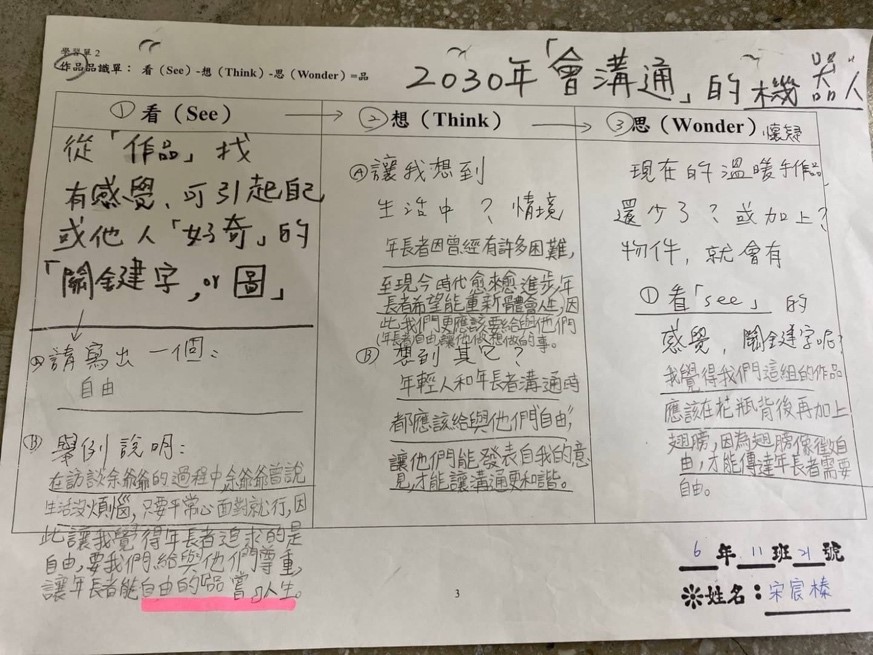 學習單 2
作品品識單： 看（See）-想（Think）-思（Wonder）=品
2030年「會溝通」的機器人
①看（See）
從「作品」找
有感覺、可引起自己
或他人「好奇」的
「關鍵字，or圖」
Ⓐ請寫出一個：
自由
Ⓑ舉例說明：
在訪談余爺爺的過程中，余爺爺曾說
生活沒煩惱，只要平常心面對就行，因
此讓我覺得年長者追求的是
自由，要我們給與他們尊重，
讓年長者能自由的『品嘗』人生。
②想（Think）
Ⓐ讓我想到
生活中？情境
年長者因曾經有許多困難，
至現今時代愈來愈進步，年
長者希望能重新體會人生，因
此我們更應該要給與他們
(年長者)自由，讓他做想做的事。
Ⓑ想到其它？
年輕人和年長者溝通時
都應該給與他們"自由"，
讓他們能發表自我的意
見，才能讓溝通更和諧。
③思（Wonder）懷疑
現在的溫暖手作品，
還少了？或加上？
物件，就會有
①看「see」的
感覺，關鍵字呢？
我覺得我們這組的作品
應該在花瓶背後再加上
翅膀，因為翅膀像徵自
由，才能傳達年長者需要
自由。
3
6年11班21號
※姓名：宋宸榛